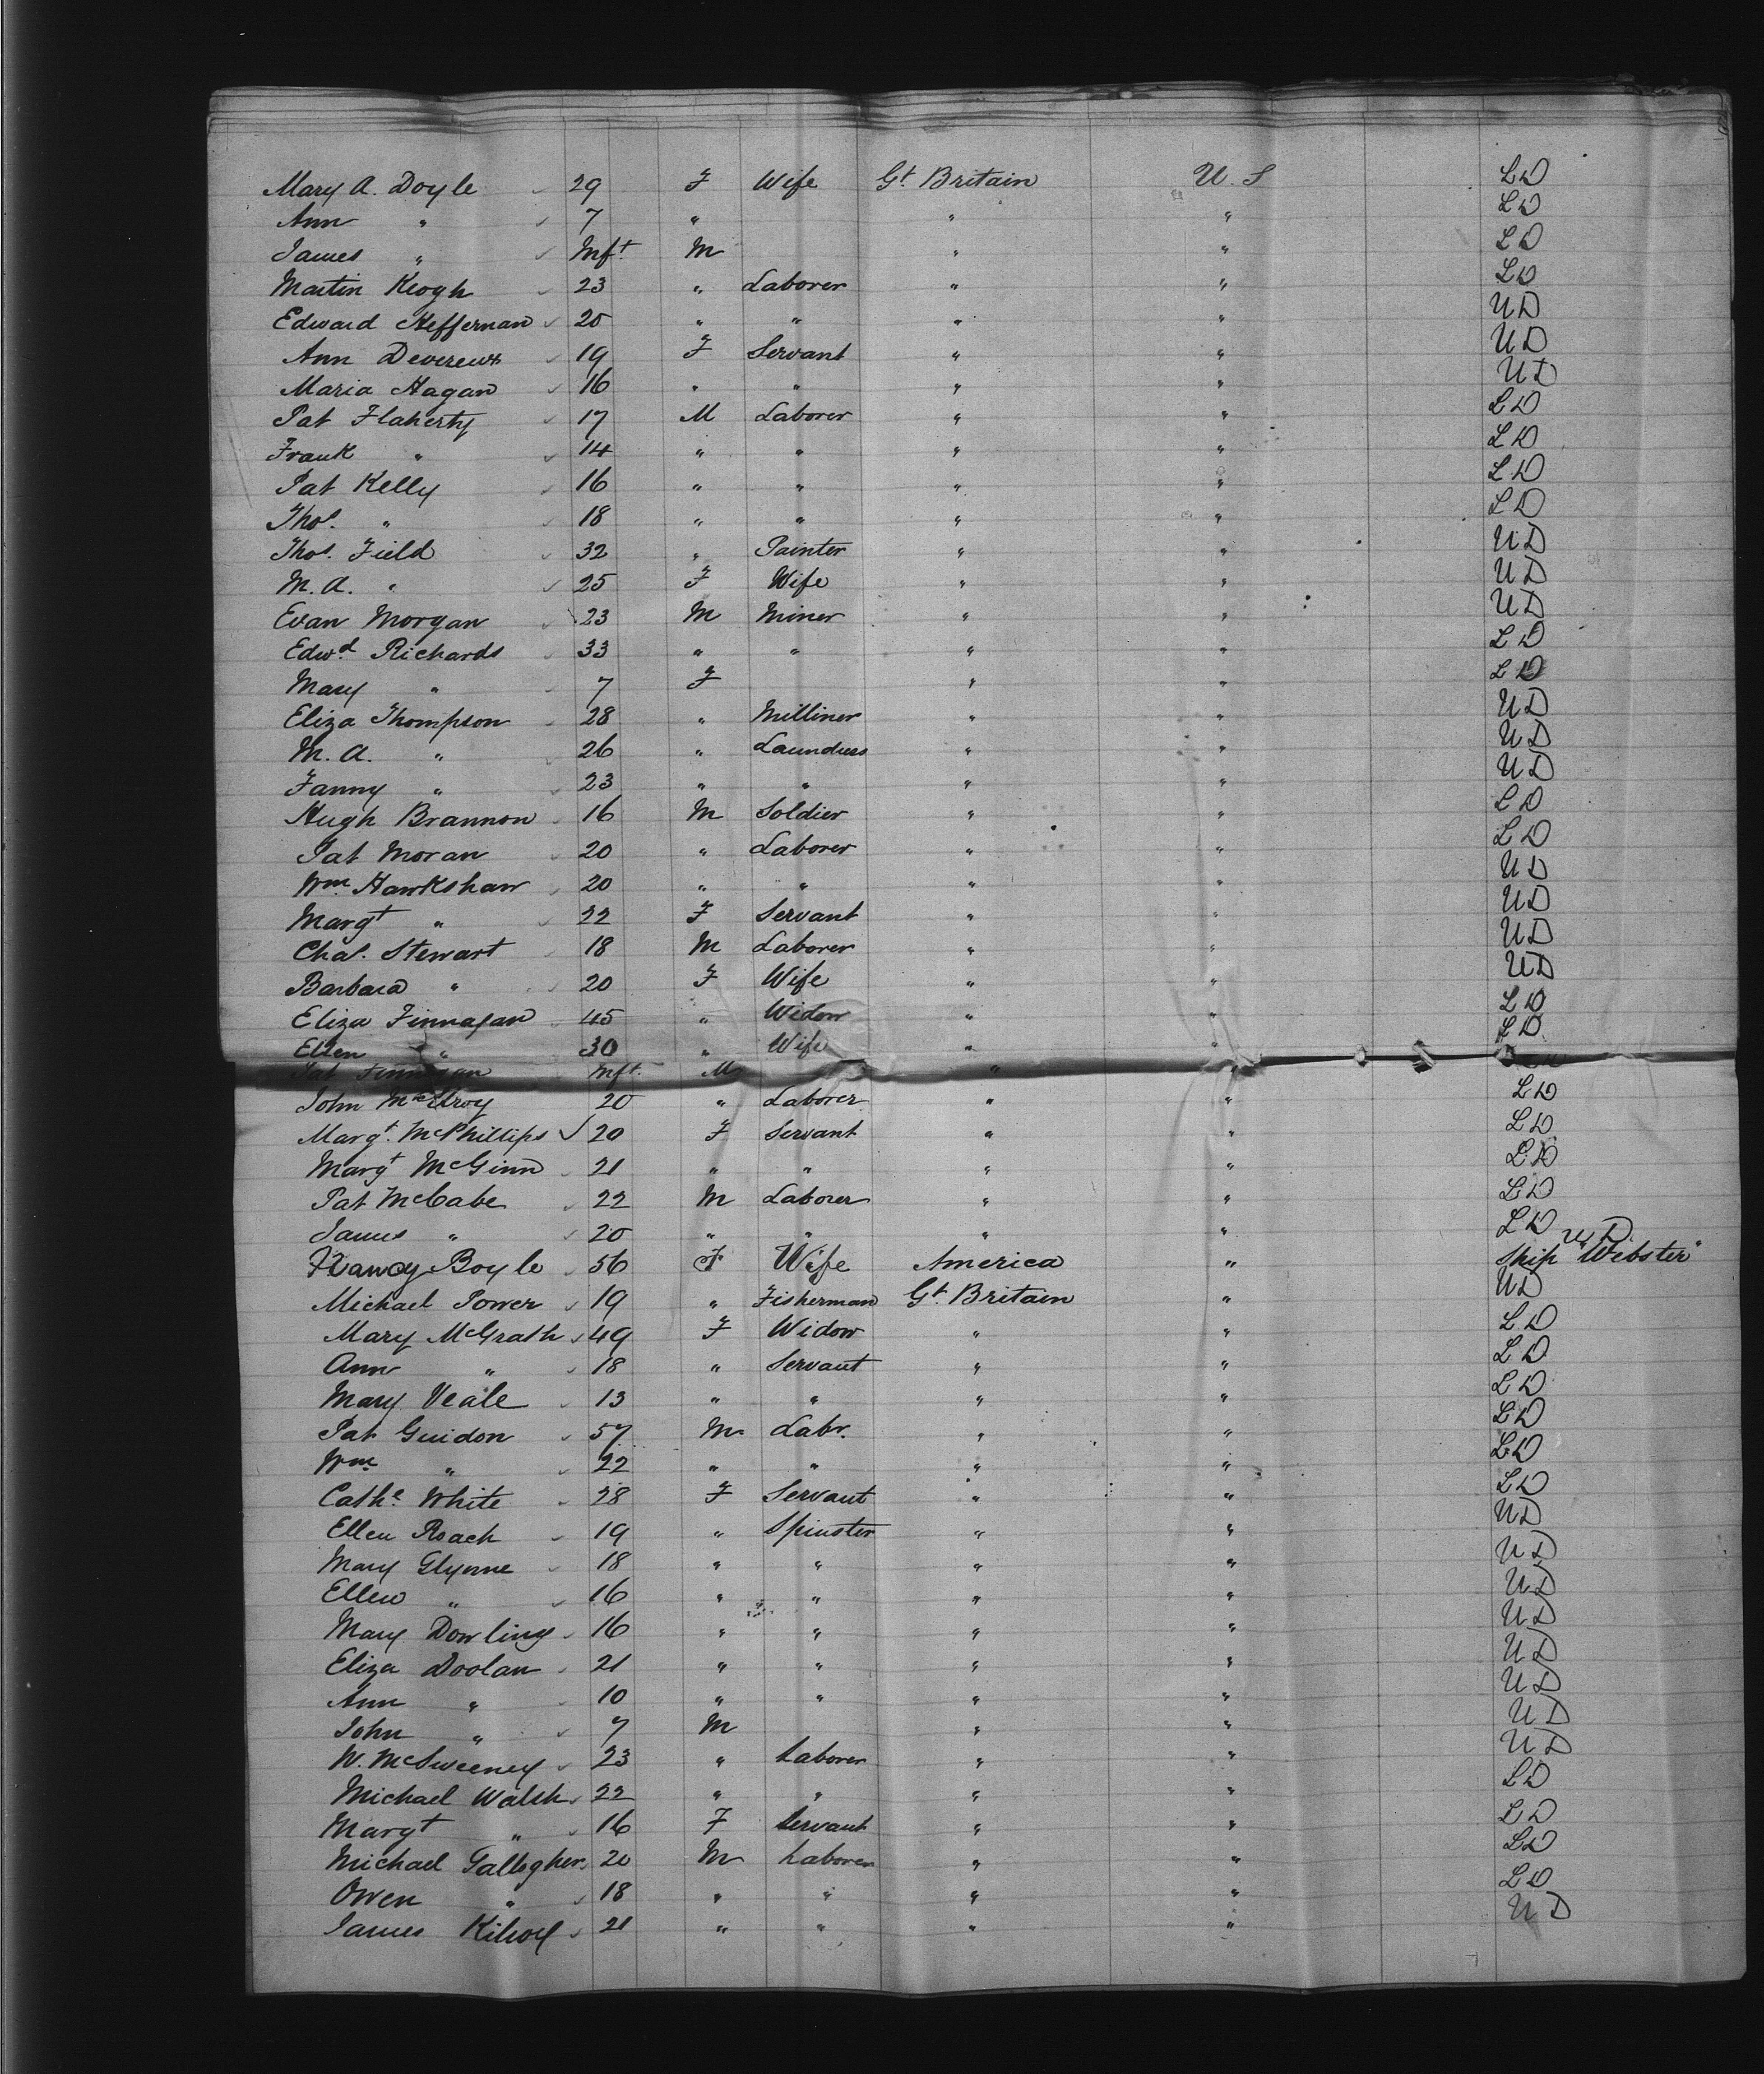 Mary A. Doyle 29 F Wife Gt. Britain U.S LD
Ann " 7 " " " LD
James " Inft. M " " LD
Martin Keogh 23 " Laborer " " LD
Edward Heffernan 20 " " " " UD
Ann Devereux 19 F Servant " " UD
Maria Hagan 16 " " " " UD
Pat Flaherty 17 M Laborer " " LD
Frank " 14 " " " " LD
Pat Kelly 16 " " " " LD
Thos. " 18 " " " " LD
Thos. Field 32 " Painter " " UD
M.A. " 25 F Wife " " UD
Evan Morgan 23 M Miner " " UD
Edwd. Richards 33 " " " " LD
Mary " 7 F " " LD
Eliza Thompson 28 " Milliner " " UD
M.A. " 26 " Laundress " " UD
Fanny " 23 " " " " UD
Hugh Brannon 16 M Soldier " " LD
Pat Moran 20 " Laborer " " LD
Wm. Hawkshaw 20 " " " " UD
Margt " 22 F Servant " " UD
Chas. Stewart 18 M Laborer " " UD
Barbara " 20 F Wife " " UD
Eliza Finnagan 45 " Widow " " LD
Ellen " 30 " Wife " " LD
Pat Finnagan Inft. M " " LD
John McElroy 20 " Laborer " " LD
Margt. McPhillips 20 F Servant " " LD
Margt McGinn 21 " " " " LD
Pat McCabe 22 M Laborer " " LD
James " 20 " " " " LD
UD
Nancy Boyle 56 F Wife America " Ship "Webster"
Michael Power 19 " Fisherman Gt. Britain " UD
Mary McGrath 49 F Widow " " LD
Ann " 18 " Servant " " LD
Mary Veale 13 " " " " LD
Pat Guidon 57 M Labr. " " LD
Wm. " 22 " " " " LD
Cathe. White 28 F Servant " " LD
Ellen Roach 19 " Spinster " " UD
Mary Glynne 18 " " " " UD
Ellen " 16 " " " " UD
Mary Dowling 16 " " " " UD
Eliza Doolan 21 " " " " UD
Ann " 10 " " " " UD
John " 7 M " " UD
W. McSweeney 23 " Laborer " " UD
Michael Walsh 22 " " " " LD
Margt " 16 F Servant " " LD
Michael Gallogher 20 M Laborer " " LD
Owen " 18 " " " " LD
James Kilroy 21 " " " " UD